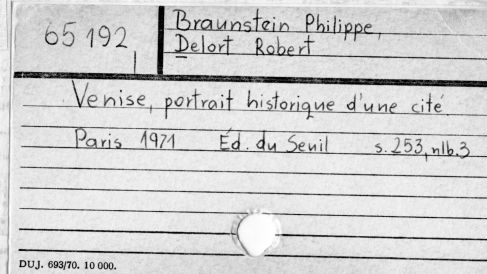 65 192
Braunstein Philippe,
Delort Robert
Venise, portrait historique d'une cité.
Paris 1971 Éd. du Seuil s. 253, nlb. 3
DUJ. 693/70. 10 000.